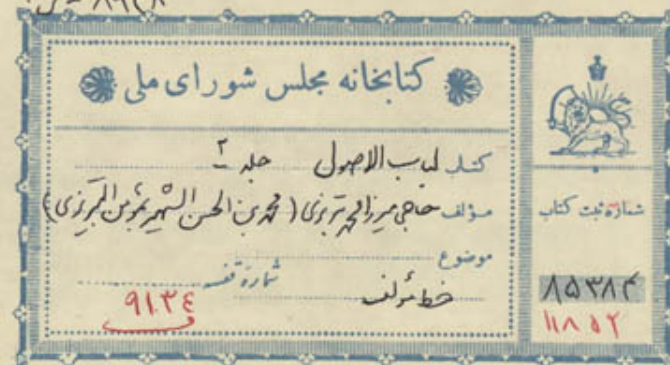 کتابخانه مجلس شورای ملی
کتاب لباب الاصول جلد ۲
مؤلف حاجی میرزا محمد تبریزی (محمد بن الحسن الشهیر
موضوع
خط مؤلف
شماره قفسه
۹۱۳٤
شماره ثبت کتاب
۸۵۳۸۴
۱۱۸۵۲